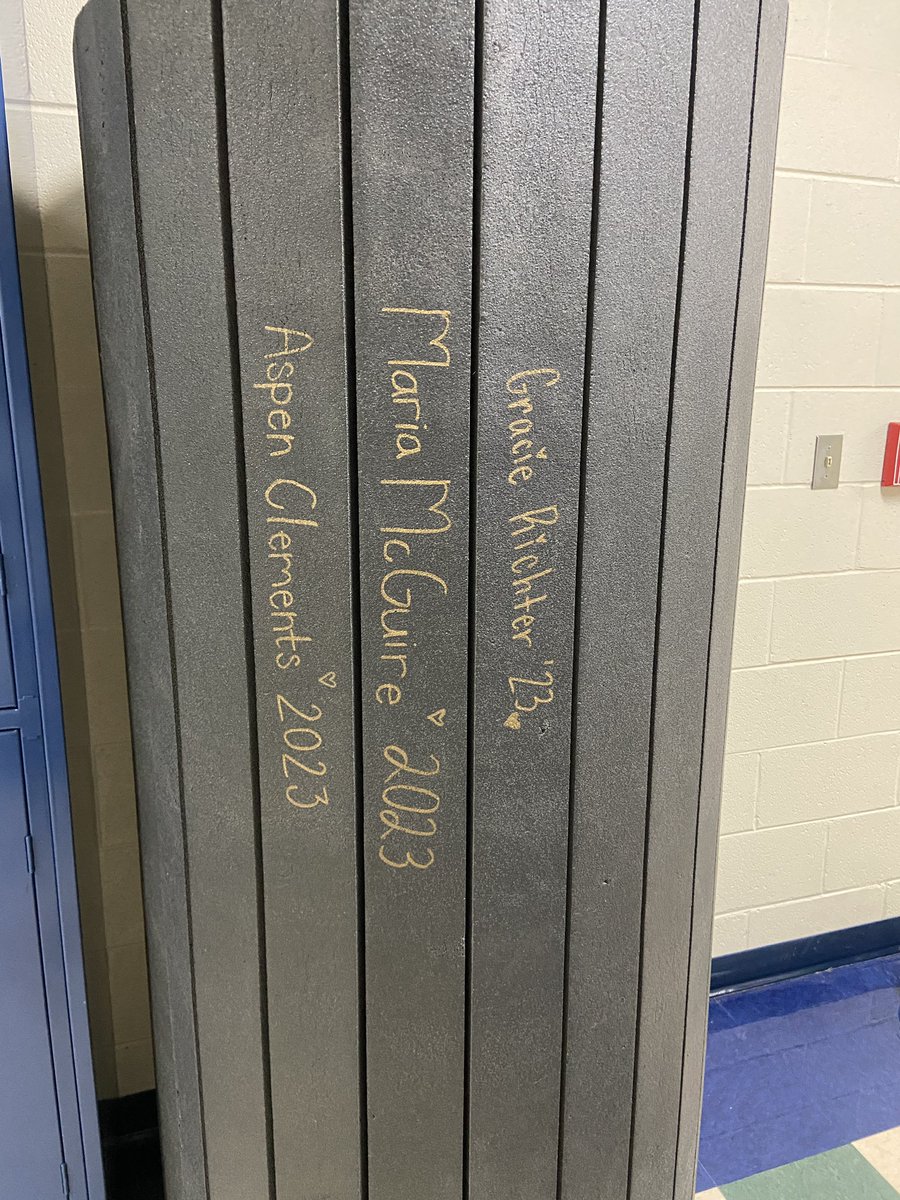 Aspen Clements ♡ 2023
Maria McGuire ♡ 2023
Gracie Richter '23 ♥